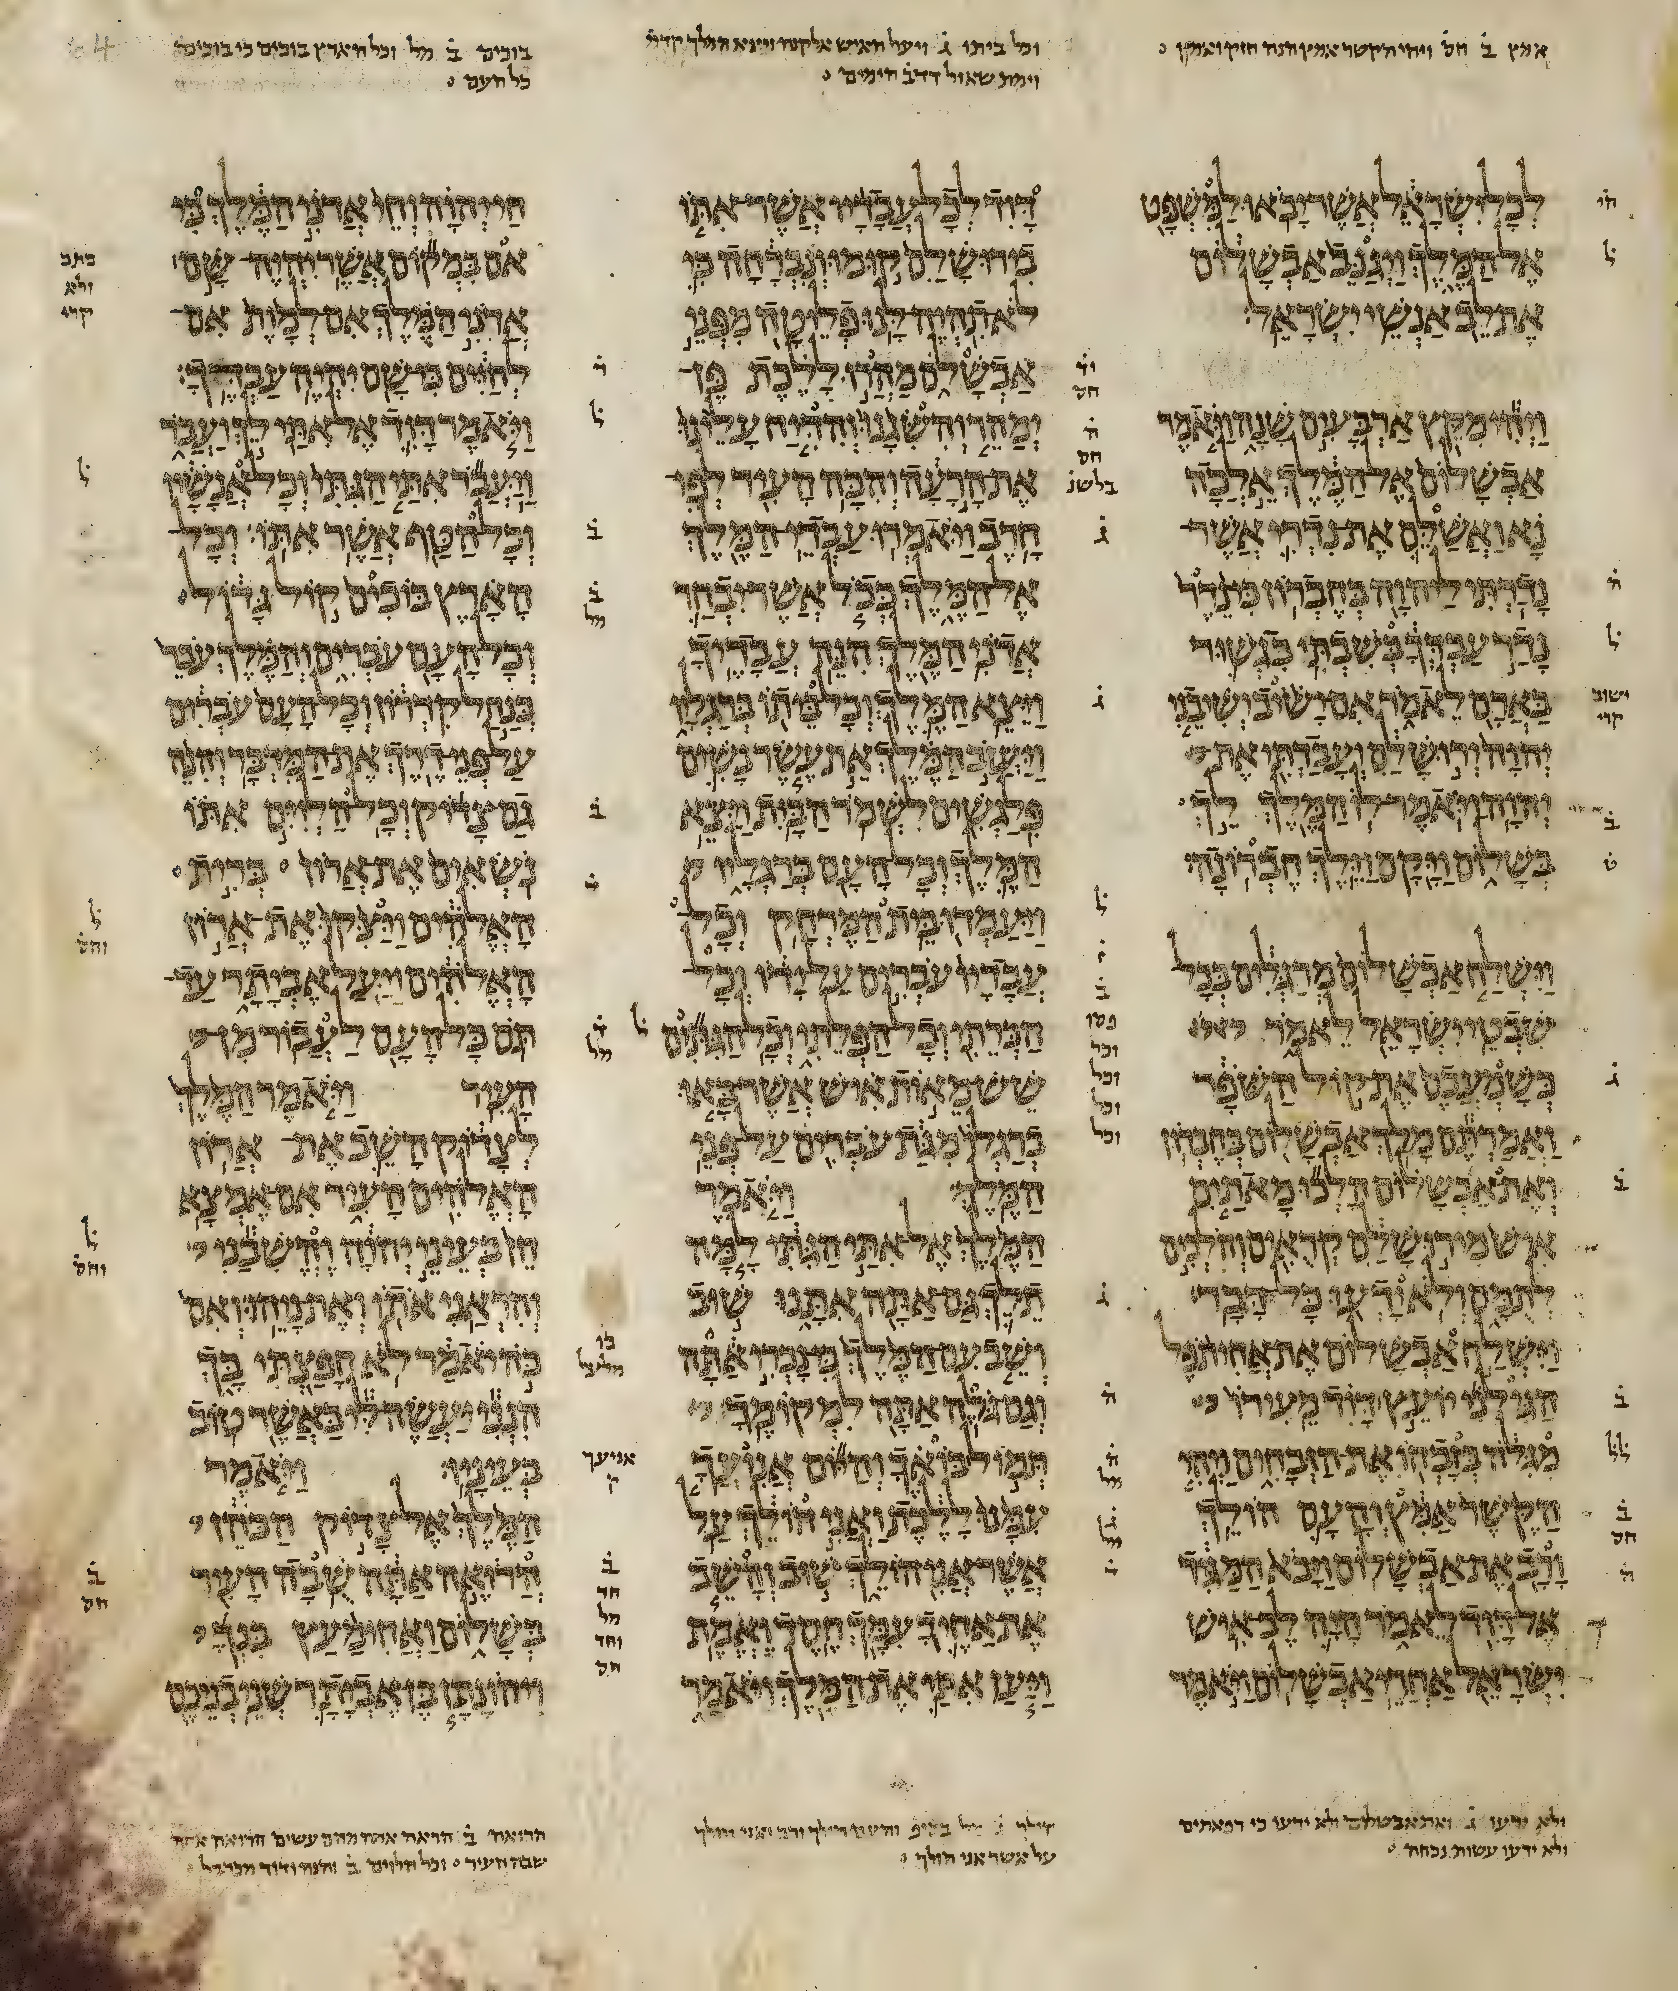 אמץ ב חס ויהי הקשר אמץ הנה חזק ואמץ
וכל ביתו ג ויעל האיש אלקנה ויצא המלך קדמ
וימת שאול דדב הימים
בוכים ב מל וכל הארץ בוכים כי בוכים
כל העם
לכל ישראל אשר יבאו למשפט
אל המלך ויגנב אבשלום
את לב אנשי ישראל
ויהי מקץ ארבעים שנה ויאמר
אבשלום אל המלך אלכה
נא ואשלם את נדרי אשר
נדרתי ליהוה בחברון כי נדר
נדר עבדך בשבתי בגשור
בארם לאמר אם ישיב ישיבני
יהוה ירושלם ועבדתי את
יהוה ויאמר לו המלך לך
בשלום ויקם וילך חברונה
וישלח אבשלום מרגלים בכל
שבטי ישראל לאמר
כשמעכם את קול השפר
ואמרתם מלך אבשלום בחברון
ואת אבשלום הלכו מאתים
איש מירושלם קראים והלכים
לתמם ולא ידעו כל דבר
וישלח אבשלום את אחיתפל
הגילני יועץ דוד מעירו
מגלה בזבחו את הזבחים ויהי
הקשר אמץ והעם הולך
ורב את אבשלום ויבא המגיד
אל דוד לאמר היה לב איש
ישראל אחרי אבשלום ויאמר
דוד לכל עבדיו אשר אתו
בירושלם קומו ונברחה כי
לא תהיה לנו פליטה מפני
אבשלם מהרו ללכת פן
ימהר והשגנו והדיח עלינו
את הרעה והכה העיר לפי
חרב ויאמרו עבדי המלך
אל המלך ככל אשר יבחר
אדני המלך הנה עבדיך
ויצא המלך וכל ביתו ברגליו
ויעזב המלך את עשר נשים
פלגשים לשמר הבית ויצא
המלך וכל העם ברגליו
ויעמדו בית המרחק וכל
עבדיו עברים על ידו וכל
הכרתי וכל הפלתי וכל הגתים
שש מאות איש אשר באו
ברגלו מגת עברים על פני
המלך ויאמר
המלך אל אתי הגתי למה
תלך גם אתה אתנו שוב
ושב עם המלך כי נכרי אתה
וגם גלה אתה למקומך
תמול בואך והיום אנועך
עמנו ללכת ואני הולך על
אשר אני הולך שוב והשב
את אחיך עמך חסד ואמת
ויען אתי את המלך ויאמר
חי יהוה וחי אדני המלך כי
אם במקום אשר יהיה שם
אדני המלך אם למות אם
לחיים כי שם יהיה עבדך
ויאמר דוד אל אתי לך ועבר
ויעבר אתי הגתי וכל אנשיו
וכל הטף אשר אתו וכל
הארץ בוכים קול גדול
וכל העם עברים והמלך עבר
בנחל קדרון וכל העם עברים
על פני דרך את המדבר והנה
גם צדוק וכל הלוים אתו
נשאים את ארון ברית
האלהים ויצקו את ארון
האלהים ויעל אביתר עד
תם כל העם לעבור מן
העיר ויאמר המלך
לצדוק השב את ארון
האלהים העיר אם אמצא
חן בעיני יהוה והשבני
והראני אתו ואת נוהו ואם
כה יאמר לא חפצתי בך
הנני יעשה לי כאשר טוב
בעיניו ויאמר
המלך אל צדוק הכהן
הרואה אתה שבה העיר
בשלום ואחימעץ בנך
ויהונתן בן אביתר שני בניכם
ולא ידעו ג ואת אבשלום ולא ידעו כי רפאתים
ולא ידעו עשות נכחה
הולך ג מל והעם הולך ורב ואני הולך
על אשר אני הולך
הרואה ב הראה אתה מהם עשים הרואה אתה
שבה העיר וכל הלוים ב והנה ודויד מכרבל